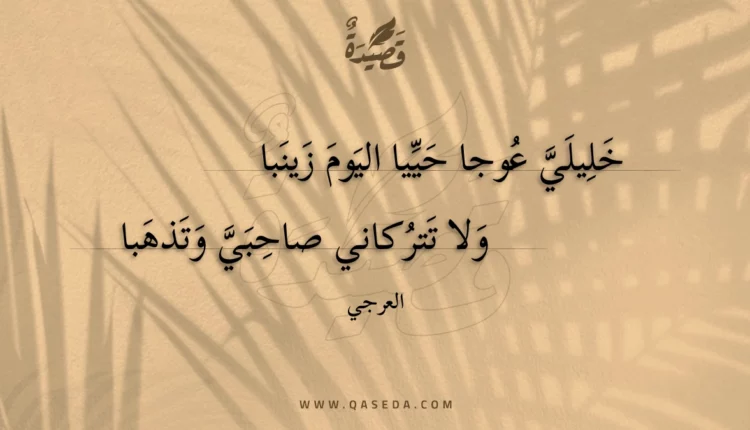 قَصِيْدَةٌ
خَلِيلَيَّ عُوجا حَيِّيا اليَومَ زَينَبا
وَلا تَترُكاني صاحِبَيَّ وَتَذهَبا
العرجي
WWW.QASEDA.COM